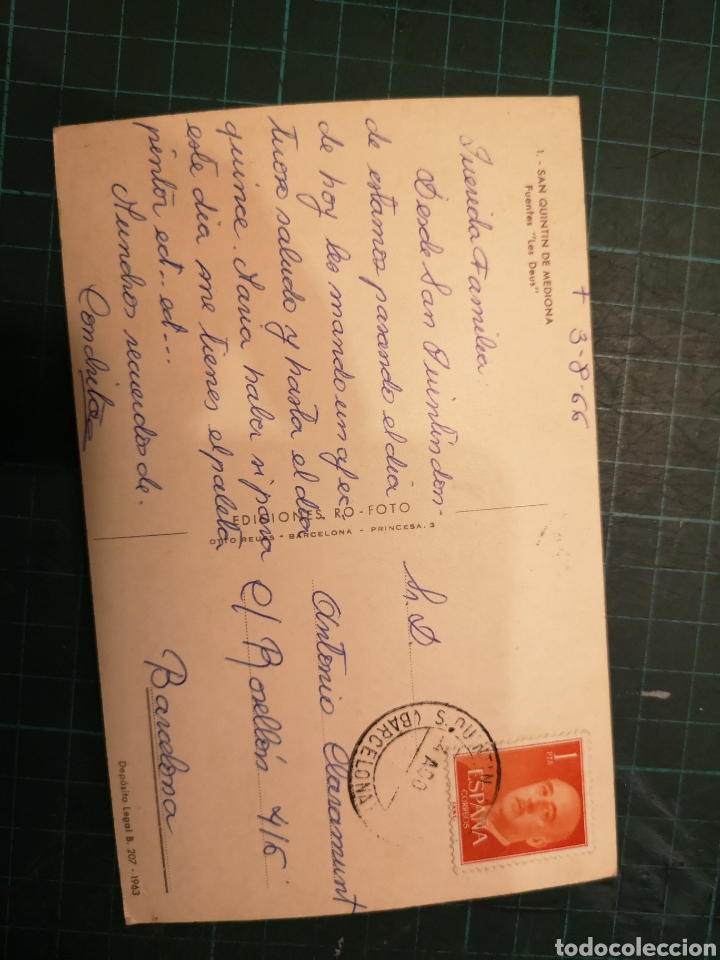 1.- SAN QUINTIN DE MEDIONA
Fuentes "Les Deus"
+ 3-8-66
Querida Familia:
Desde San Quintin don-
de estamos pasando el dia
de hoy les mando un afec-
tuoso saludo y hasta el dia
quince. Aara haber si para
este dia me tienes el paleta
pintor ect.. ect...
Munchos recuerdos de.
Conchita
EDICIONES RO-FOTO
REUS - BARCELONA - PRINCESA, 3
Sr. D.
Antonio Claramunt
c/ Rosellón 416
Barcelona
Depósito Legal B. 207 - 1963
(BARCELONA)
4 AGO
1
PTA
ESPAÑA
CORREOS
todocoleccion